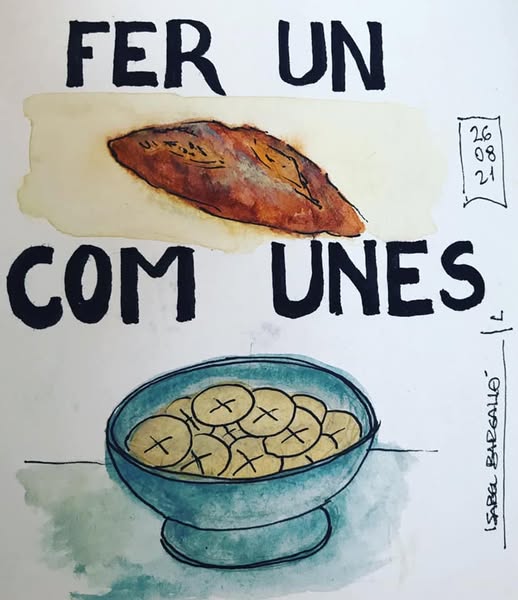 FER UN
COM UNES
26
08
21
ISABEL BARGALLÓ